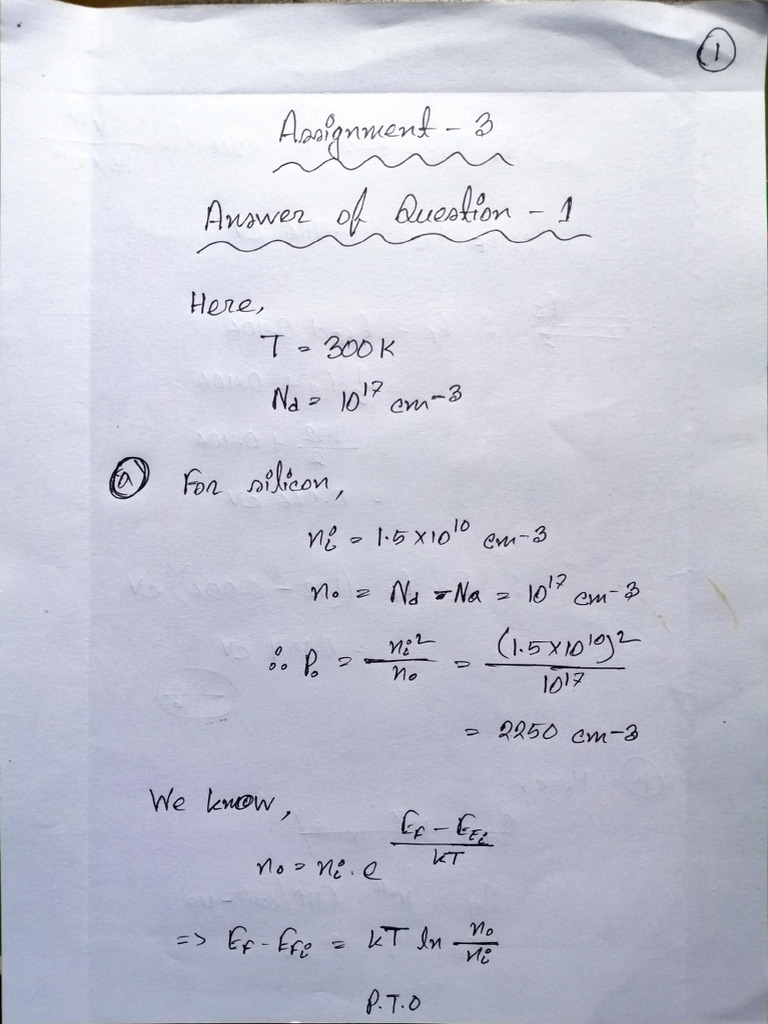 1
Assignment - 3
Answer of Question - 1
Here,
T = 300 K
Nd = 10^17 cm-3
(a) For silicon,
ni = 1.5 × 10^10 cm-3
no = Nd - Na = 10^17 cm-3
∴ Po = ni^2 / no = (1.5 × 10^10)^2 / 10^17
= 2250 cm-3
We know,
no = ni . e^((EF - EFi) / kT)
=> EF - EFi = kT ln no / ni
P.T.O